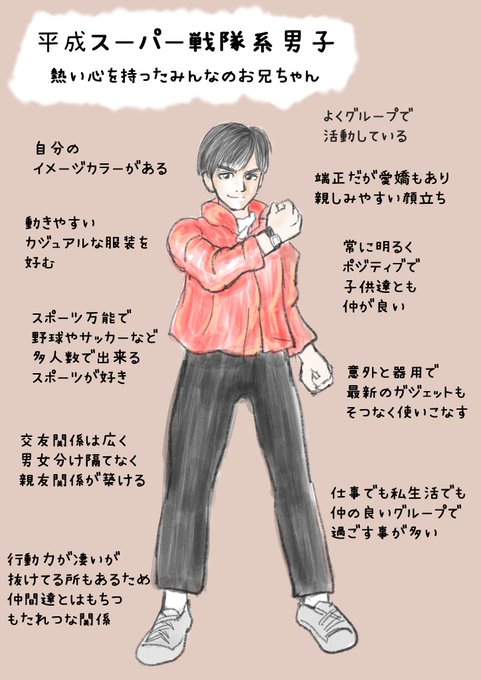 平成スーパー戦隊系男子
熱い心を持ったみんなのお兄ちゃん
よくグループで
活動している
自分の
イメージカラーがある
端正だが愛嬌もあり
親しみやすい顔立ち
動きやすい
カジュアルな服装を
好む
常に明るく
ポジティブで
子供達とも
仲が良い
スポーツ万能で
野球やサッカーなど
多人数で出来る
スポーツが好き
意外と器用で
最新のガジェットも
そつなく使いこなす
交友関係は広く
男女分け隔てなく
親友関係が築ける
仕事でも私生活でも
仲の良いグループで
過ごす事が多い
行動力が凄いが
抜けてる所もあるため
仲間達とはもちつ
もたれつな関係